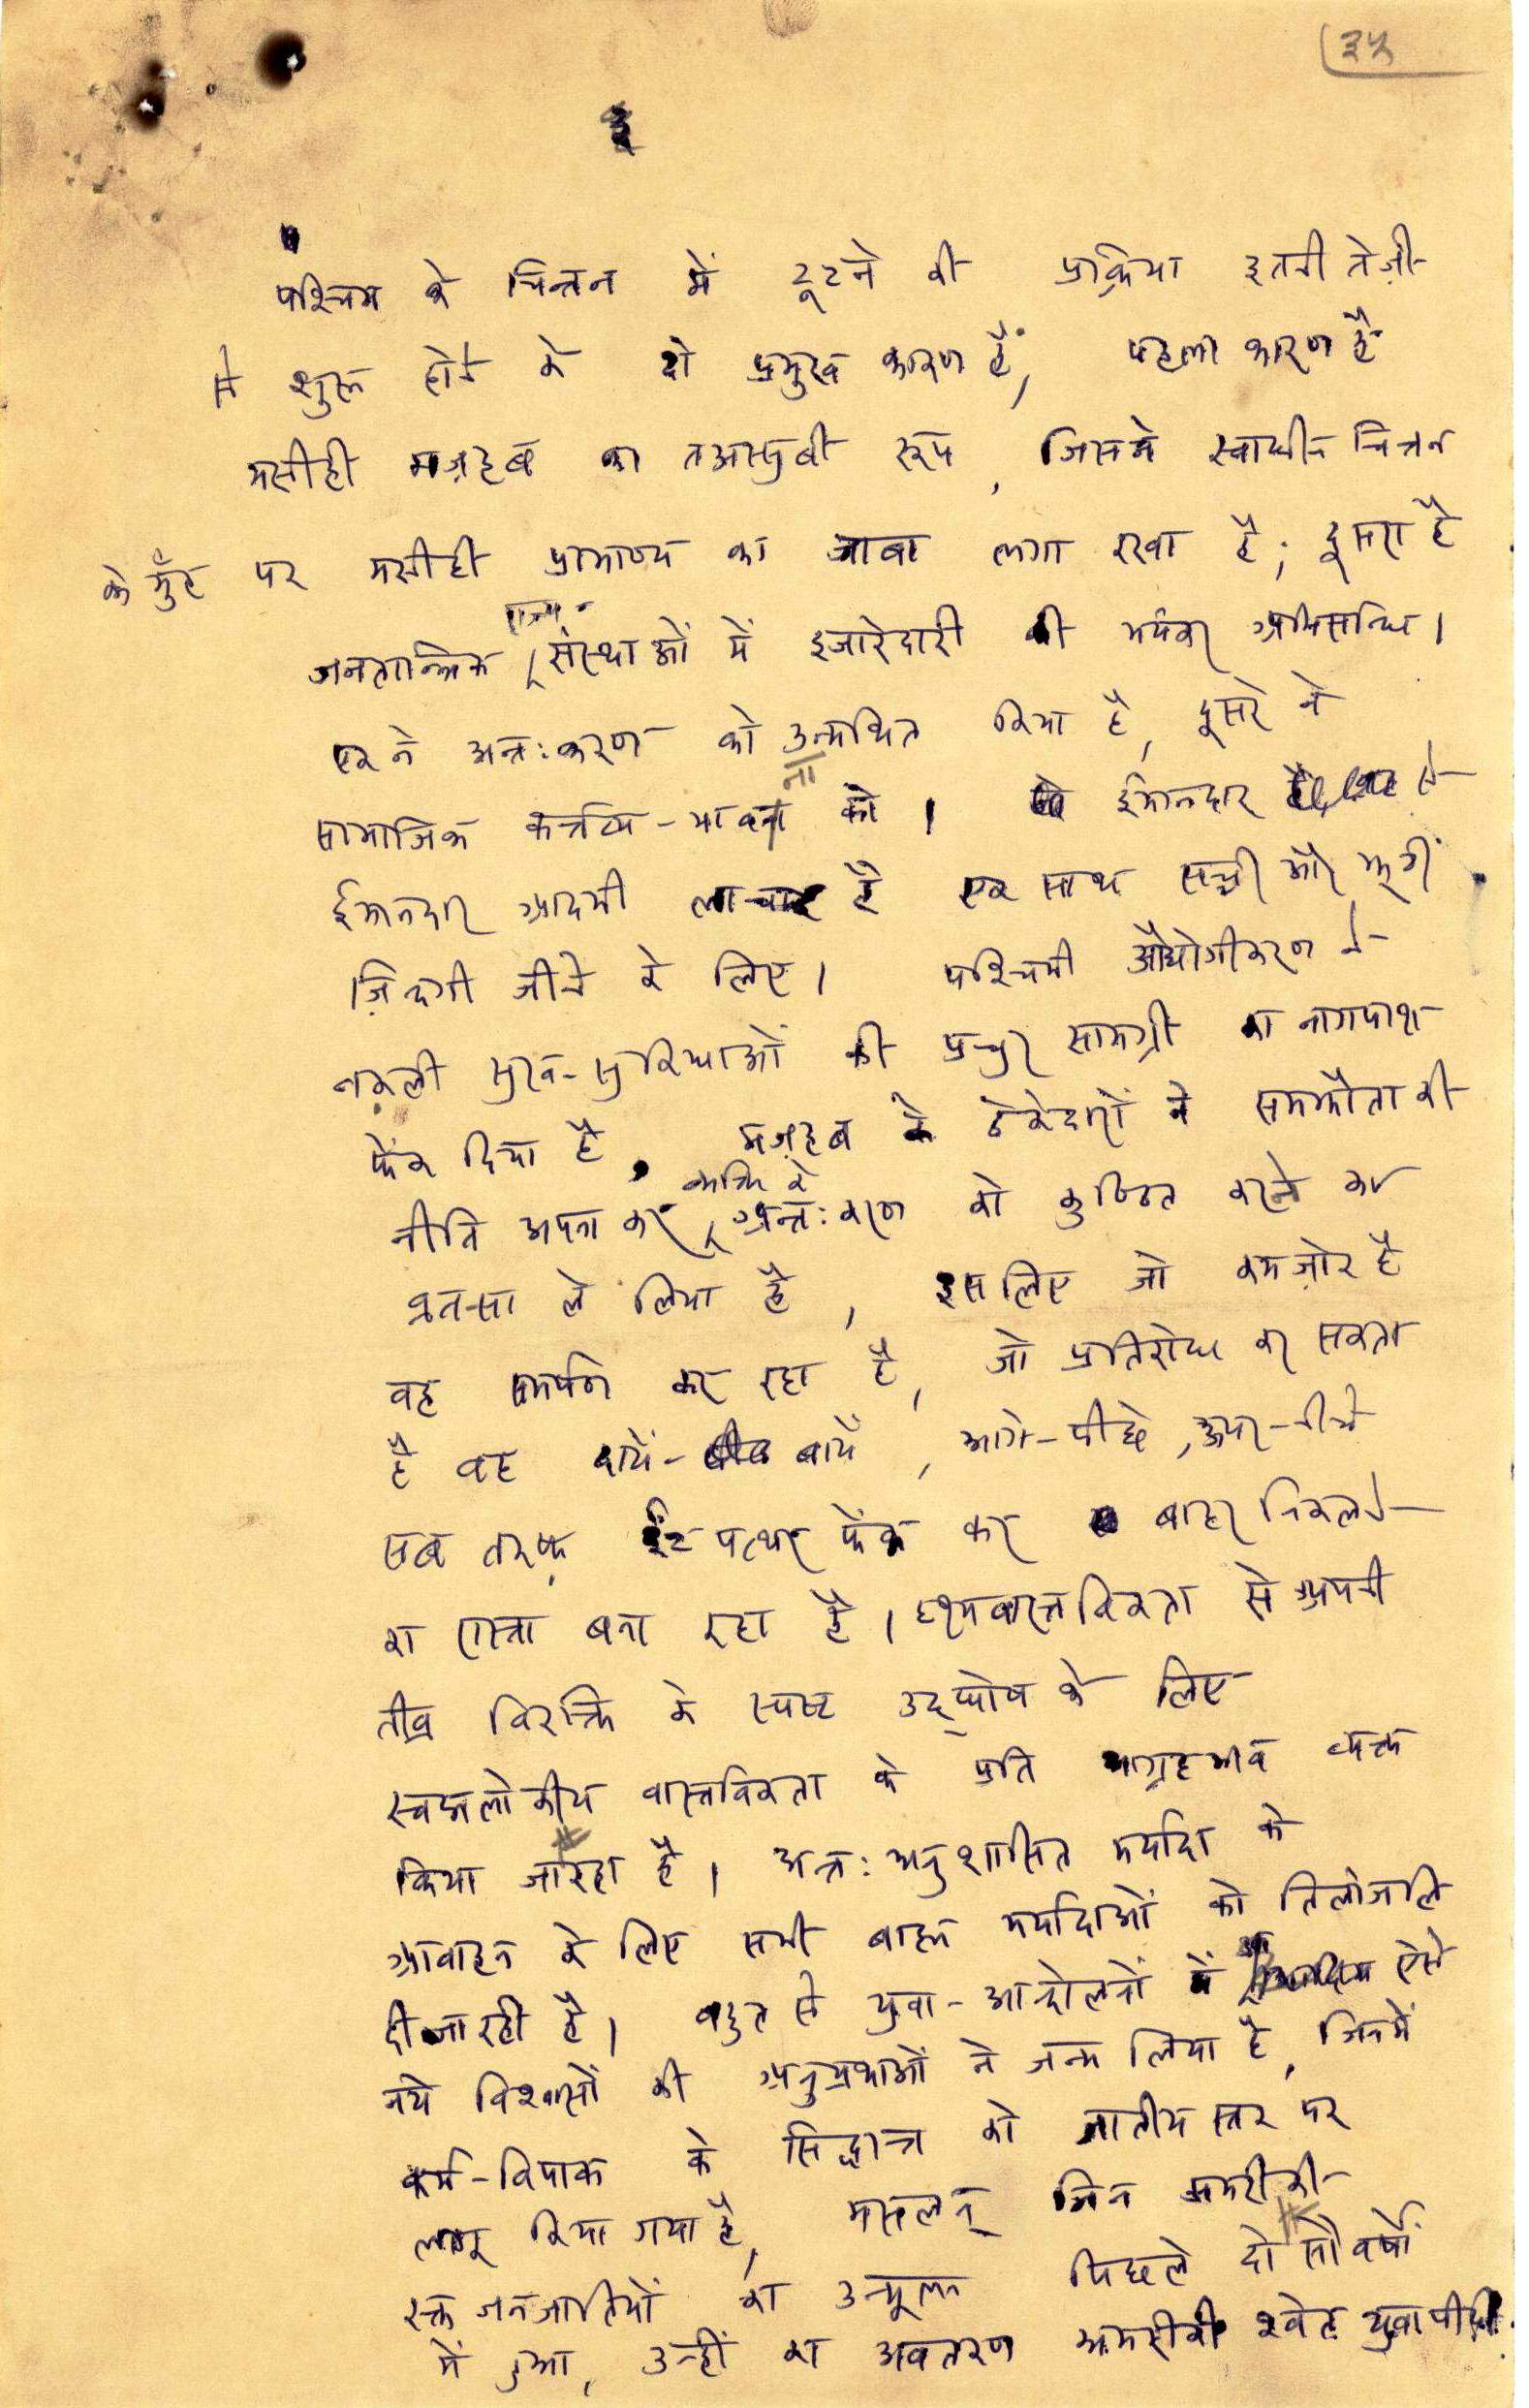 ३५
३
पश्चिम के चिन्तन में टूटने की प्रक्रिया इतनी तेज़ी
से शुरू होने के दो प्रमुख कारण हैं, पहला कारण है
मसीही मज़हब का तअस्सुबी रूप, जिसने स्वाधीन चिन्तन
के मुँह पर मसीही प्रामाण्य का जाबा लगा रखा है; दूसरा है
जनतान्त्रिक राज्य-संस्थाओं में इजारेदारी की भयंकर अभिसन्धि।
एक ने अन्तःकरण को उन्मथित किया है, दूसरे ने
सामाजिक कर्त्तव्य-भावना को। ईमानदार से
ईमानदार आदमी लाचार है एक साथ सच्ची और झूठी
ज़िन्दगी जीने के लिए। पश्चिमी औद्योगीकरण ने
नकली सुख-सुविधाओं की प्रचुर सामग्री का नागपाश
फेंक दिया है, मज़हब के ठेकेदारों ने समझौता की
नीति अपना कर व्यक्ति के अन्तःकरण को कुण्ठित करने का
व्रत-सा ले लिया है, इसलिए जो कमज़ोर है
वह समर्पण कर रहा है, जो प्रतिरोध कर सकता
है वह दायें-बायें, आगे-पीछे, ऊपर-नीचे
सब तरफ़ ईंट पत्थर फेंक कर बाहर निकलने
का रास्ता बना रहा है। दृश्य वास्तविकता से अपनी
तीव्र विरक्ति के स्पष्ट उद्घोष के लिए
स्वप्नलोकीय वास्तविकता के प्रति आग्रहभाव व्यक्त
किया जा रहा है। अन्तःअनुशासित मर्यादा के
आवाहन के लिए सभी बाह्य मर्यादाओं को तिलांजलि
दी जा रही है। बहुत से युवा-आन्दोलनों में ऐसे
नये विश्वासों की अनुप्रथाओं ने जन्म लिया है, जिनमें
कर्म-विपाक के सिद्धान्त को जातीय स्तर पर
लागू किया गया है, मसलन् जिन अमरीकी
रक्त जनजातियों का उन्मूलन पिछले दो सौ वर्षों
में हुआ, उन्हीं का अवतरण अमरीकी श्वेत युवा पीढ़ी